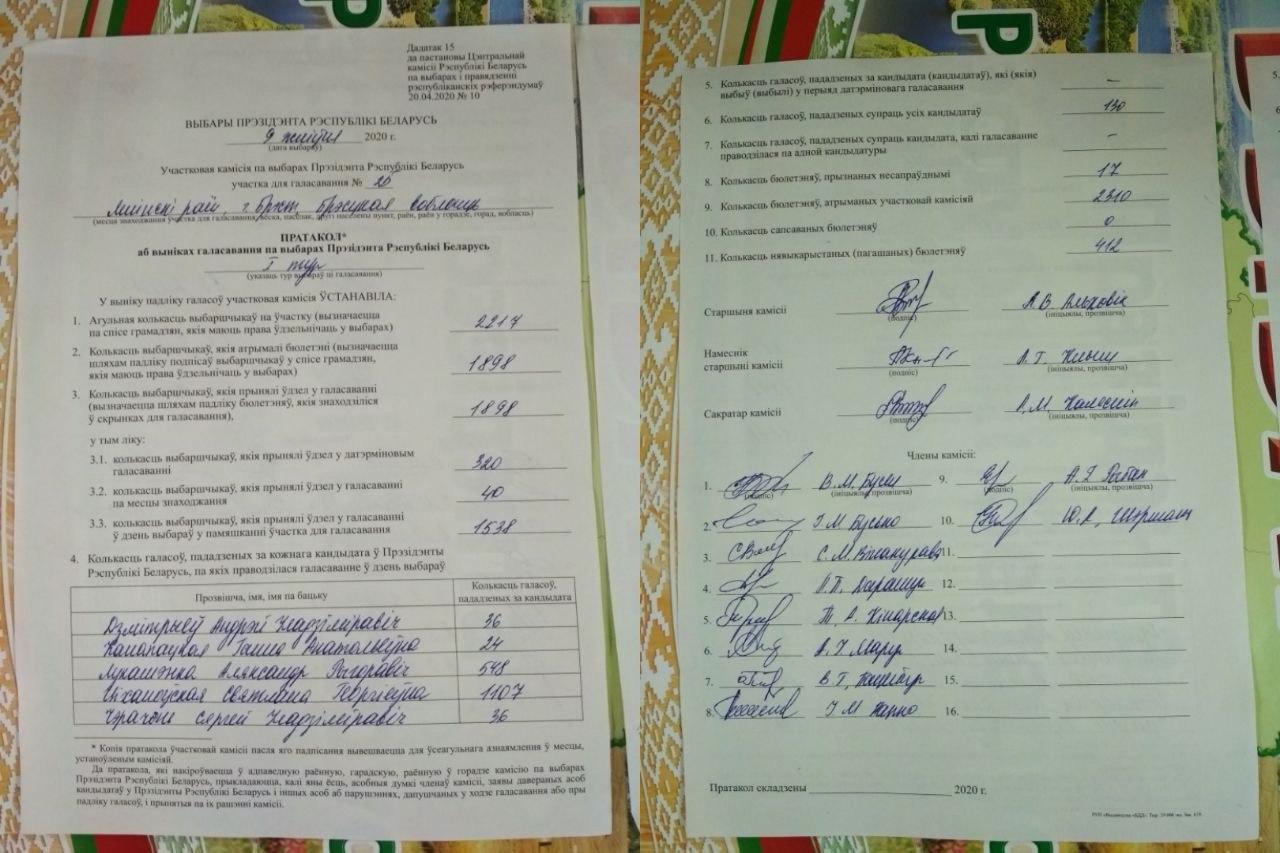 Дадатак 15
да пастановы Цэнтральнай
камісіі Рэспублікі Беларусь
па выбарах і правядзенні
рэспубліканскіх рэферэндумаў
20.04.2020 № 10
ВЫБАРЫ ПРЭЗІДЭНТА РЭСПУБЛІКІ БЕЛАРУСЬ
9 жніўня 2020 г.
(дата выбараў)
Участковая камісія па выбарах Прэзідэнта Рэспублікі Беларусь
участка для галасавання № 20
раён, г. Брэст, Брэсцкая вобласць
(месца знаходжання ўчастка для галасавання, вёска, пасёлак, другі населены пункт, раён, раён у горадзе, горад, вобласць)
ПРАТАКОЛ*
аб выніках галасавання па выбарах Прэзідэнта Рэспублікі Беларусь
I тур
(указаць тур выбараў ці галасавання)
У выніку падліку галасоў участковая камісія ЎСТАНАВІЛА:
1. Агульная колькасць выбаршчыкаў на ўчастку (вызначаецца
па спісе грамадзян, якія маюць права ўдзельнічаць у выбарах) 2217
2. Колькасць выбаршчыкаў, якія атрымалі бюлетэні (вызначаецца
шляхам падліку подпісаў выбаршчыкаў у спісе грамадзян,
якія маюць права ўдзельнічаць у выбарах) 1898
3. Колькасць выбаршчыкаў, якія прынялі ўдзел у галасаванні
(вызначаецца шляхам падліку бюлетэняў, якія знаходзіліся
ў скрынках для галасавання), 1898
у тым ліку:
3.1. колькасць выбаршчыкаў, якія прынялі ўдзел у датэрміновым
галасаванні 320
3.2. колькасць выбаршчыкаў, якія прынялі ўдзел у галасаванні
па месцы знаходжання 40
3.3. колькасць выбаршчыкаў, якія прынялі ўдзел у галасаванні
ў дзень выбараў у памяшканні ўчастка для галасавання 1538
4. Колькасць галасоў, пададзеных за кожнага кандыдата ў Прэзідэнты
Рэспублікі Беларусь, па якіх праводзілася галасаванне ў дзень выбараў
Прозвішча, імя, імя па бацьку Колькасць галасоў,
пададзеных за кандыдата
Дзмітрыеў Андрэй Уладзіміравіч 36
Канапацкая Ганна Анатольеўна 24
Лукашэнка Аляксандр Рыгоравіч 548
Ціханоўская Святлана Георгіеўна 1107
Чэрачэнь Сяргей Уладзіміравіч 36
* Копія пратакола ўчастковай камісіі пасля яго падпісання вывешваецца для ўсеагульнага азнаямлення ў месцы,
устаноўленым камісіяй.
Да пратакола, які накіроўваецца ў адпаведную раённую, гарадскую, раённую ў горадзе камісію па выбарах
Прэзідэнта Рэспублікі Беларусь, прыкладаюцца, калі яны ёсць, асобныя думкі членаў камісіі, заявы давераных асоб
кандыдатаў у Прэзідэнты Рэспублікі Беларусь і іншых асоб аб парушэннях, дапушчаных у ходзе галасавання або пры
падліку галасоў, і прынятыя па іх рашэнні камісіі.
5. Колькасць галасоў, пададзеных за кандыдата (кандыдатаў), які (якія)
выбыў (выбылі) у перыяд датэрміновага галасавання –
6. Колькасць галасоў, пададзеных супраць усіх кандыдатаў 130
7. Колькасць галасоў, пададзеных супраць кандыдата, калі галасаванне
праводзілася па адной кандыдатуры –
8. Колькасць бюлетэняў, прызнаных несапраўднымі 17
9. Колькасць бюлетэняў, атрыманых участковай камісіяй 2310
10. Колькасць сапсаваных бюлетэняў 0
11. Колькасць нявыкарыстаных (пагашаных) бюлетэняў 412
Старшыня камісіі А.В.
(подпіс) (ініцыялы, прозвішча)
Намеснік
старшыні камісіі
(подпіс) (ініцыялы, прозвішча)
Сакратар камісіі
(подпіс) (ініцыялы, прозвішча)
Члены камісіі:
1. В.М. 9.
(подпіс) (ініцыялы, прозвішча) (подпіс) (ініцыялы, прозвішча)
2. 10.
3. С.М. 11.
4. 12.
5. 13.
6. 14.
7. 15.
8. 16.
Пратакол складзены 2020 г.